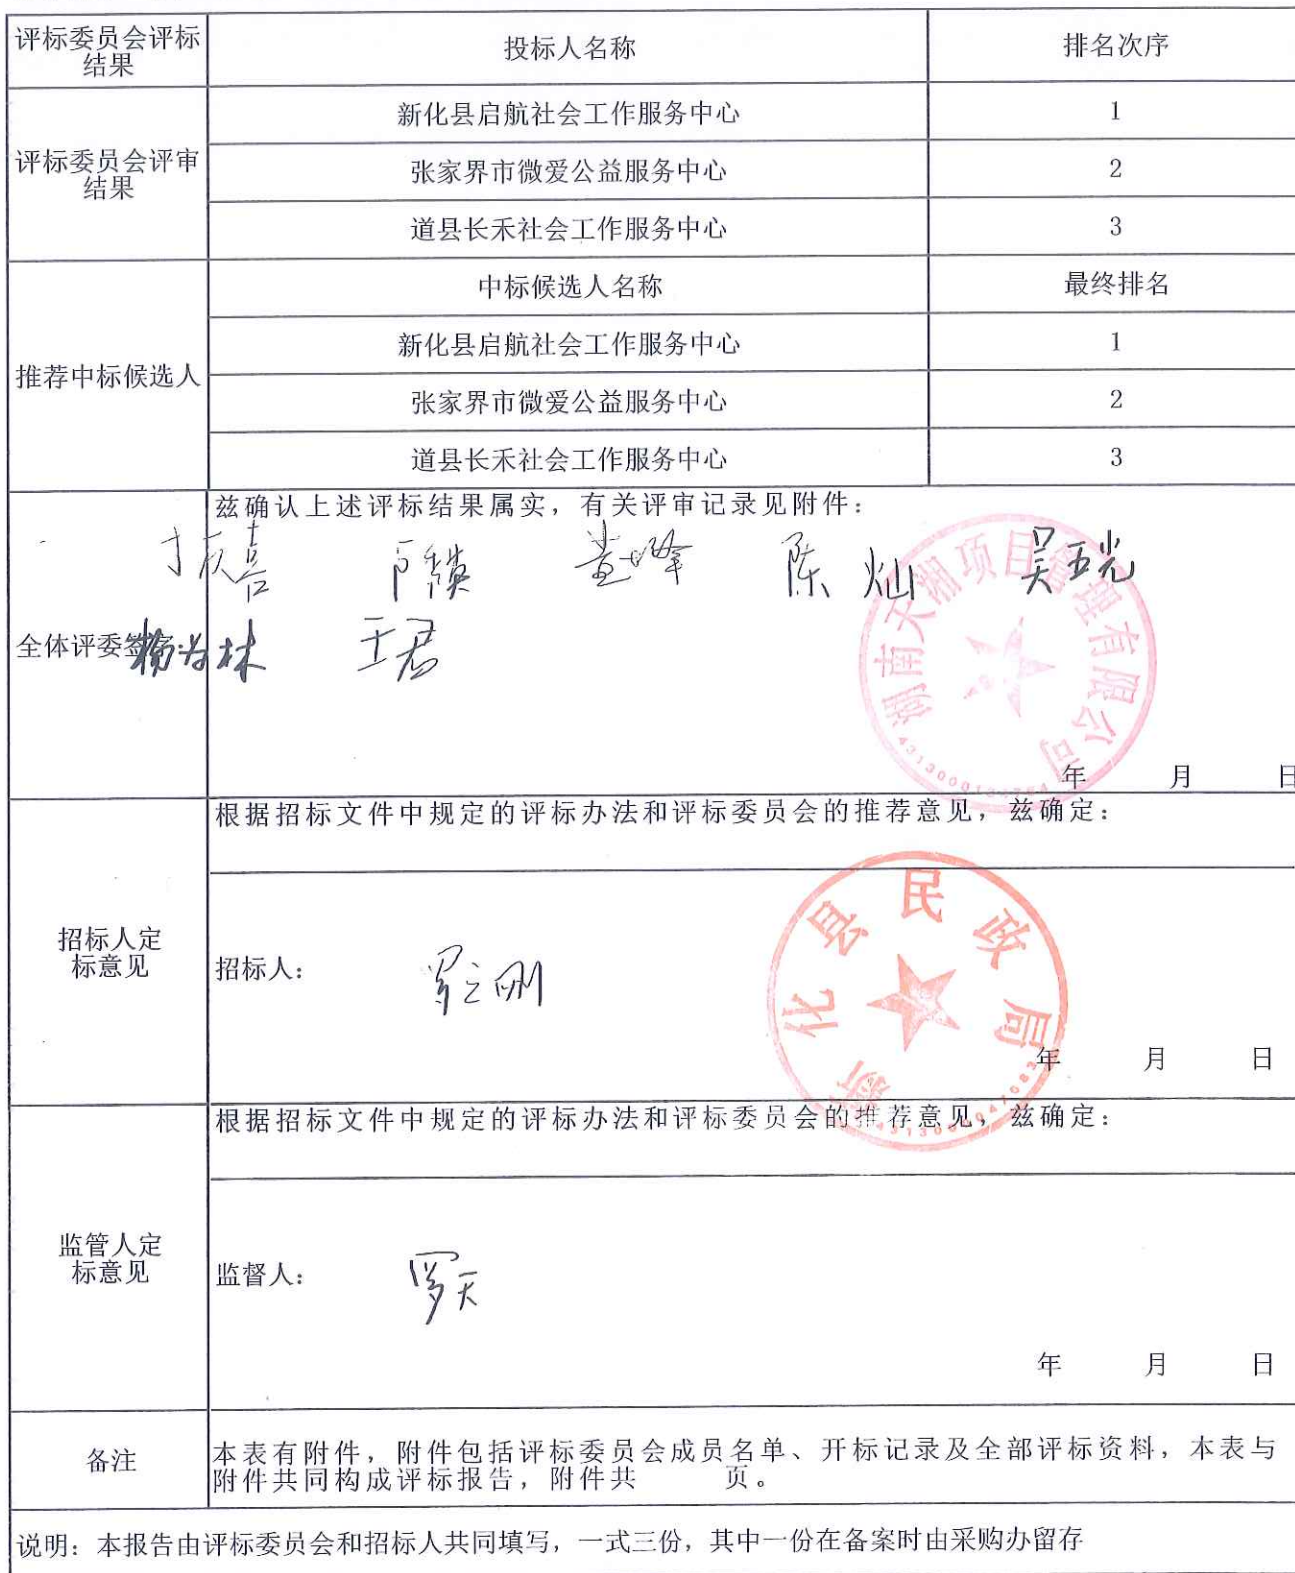 评标委员会评标
结果
投标人名称
排名次序
评标委员会评审
结果
新化县启航社会工作服务中心
1
张家界市微爱公益服务中心
2
道县长禾社会工作服务中心
3
推荐中标候选人
中标候选人名称
最终排名
新化县启航社会工作服务中心
1
张家界市微爱公益服务中心
2
道县长禾社会工作服务中心
3
兹确认上述评标结果属实，有关评审记录见附件：
陈灿
全体评委签
王君
湖南天湘项目管理有限公司
年 月 日
招标人定
标意见
根据招标文件中规定的评标办法和评标委员会的推荐意见，兹确定：
招标人：
新化县民政局
年 月 日
监管人定
标意见
根据招标文件中规定的评标办法和评标委员会的推荐意见，兹确定：
监督人：
罗天
年 月 日
备注
本表有附件，附件包括评标委员会成员名单、开标记录及全部评标资料，本表与
附件共同构成评标报告，附件共 页。
说明：本报告由评标委员会和招标人共同填写，一式三份，其中一份在备案时由采购办留存